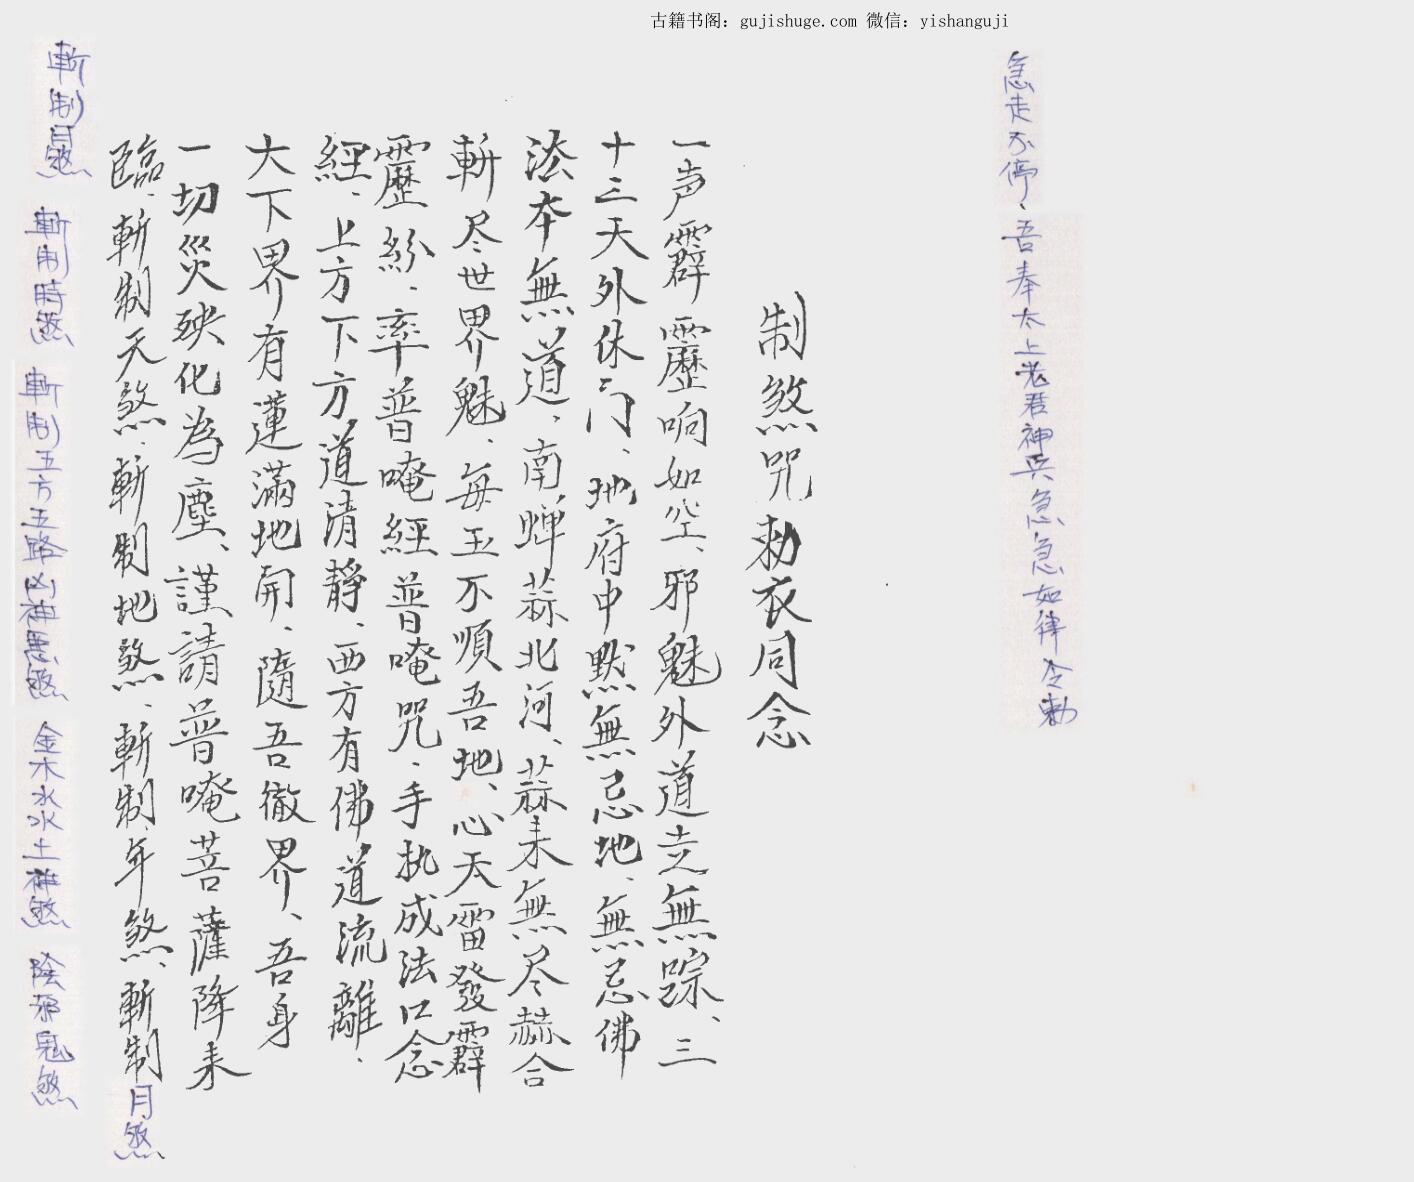 古籍书阁：gujishuge.com 微信：yishanguji
急走不停、吾奉太上老君神兵急急如律令勅
制煞咒勅衣同念
一声霹靂响如空、邪魅外道走無踪、三
十三天外休门、地府中默無忌地、無忌佛
法本無道、南蝉蒜北河、蒜来無尽赫合
斬尽世界魅、每玉不順吾地、心天雷發霹
靂紛、率普唵經普唵咒、手执成法口念
經、上方下方道清靜、西方有佛道流離、
大下界有蓮滿地開、隨吾徹界、吾身
一切災殃化為塵、謹請普唵菩薩降来
臨、斬制天煞、斬制地煞、斬制年煞、斬制月煞
斬制日煞 斬制時煞 斬制五方五路凶神惡煞 金木水水土神煞 陰邪鬼煞